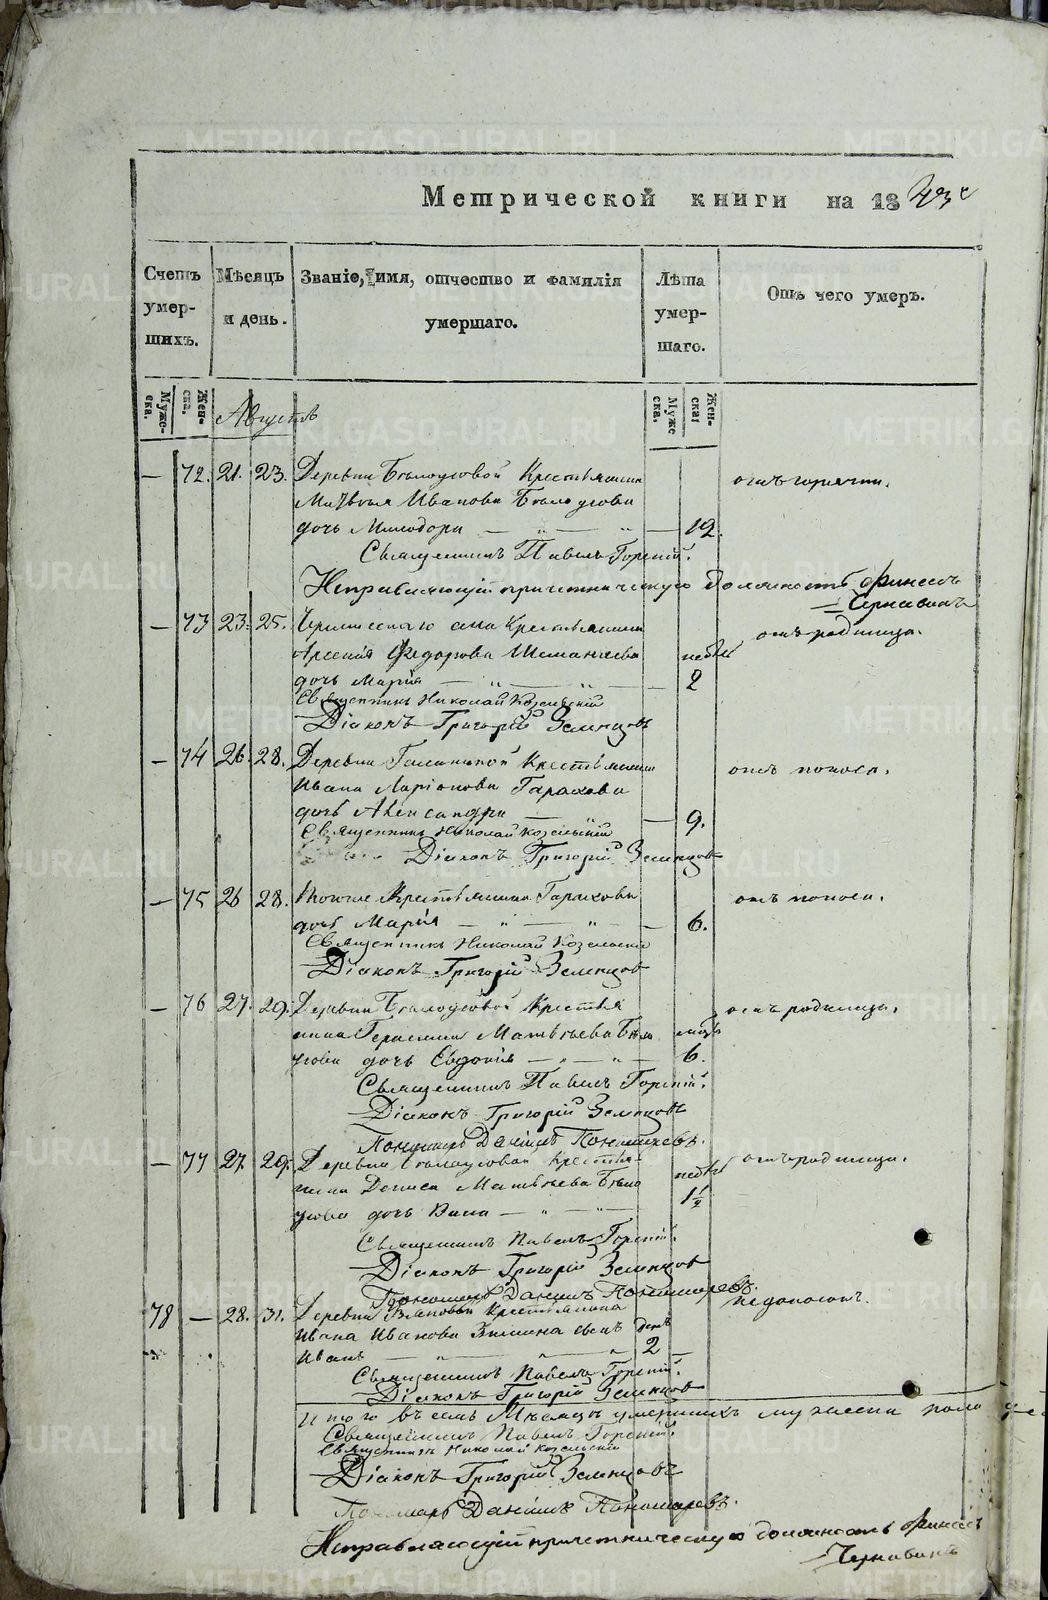 Метрической книги на 1843 г
Счетъ умершихъ.
Мѣсяцъ и день.
Званіе, имя, отчество и фамилія умершаго.
Лѣта умершаго.
Отъ чего умеръ.
Мужеска.
Женска.
Августъ
Мужеска.
Женска.
— 72. 21. 23. Деревни Бѣлоусовой Крестьянина
Матвѣя Иванова Бѣлоусова
дочь — 12.
отъ горячки.
Священникъ Павелъ Горскій.
Исправляющій причетническую должность Финеесъ
Чернавинъ
— 73 23. 25. села Крестьянина
Арсенія Федорова
дочь Марія — 2
отъ родимца.
Священникъ Николай Козельскій
Діаконъ Григорій Земляцовъ
— 74 26. 28. Деревни Крестьянина
Ивана Ларіонова Гарахова
дочь Александра — 9.
отъ поноса.
Священникъ Николай Козельскій
Діаконъ Григорій
— 75 26 28. Крестьянина Гарахова
дочь Марія — 6.
отъ поноса.
Священникъ Николай Козельскій
Діаконъ Григорій
— 76 27. 29. Деревни Бѣлоусовой Крестья
нина Герасима Матвѣева Бѣло
усова дочь Евдокія — 6.
отъ родимца.
Священникъ Павелъ Горскій.
Діаконъ Григорій
Пономарь Даніилъ Пономаревъ.
— 77 27. 29. Деревни Бѣлоусовой Крестья-
нина Дениса Матвѣева Бѣло
усова дочь Васса — 1½
отъ родимца.
Священникъ Павелъ Горскій.
Діаконъ Григорій
Пономарь Даніилъ Пономаревъ.
78 — 28. 31. Деревни Крестьянина
Ивана Иванова сынъ день
Иванъ — 2 —
недоносокъ.
Священникъ Павелъ Горскій.
Діаконъ Григорій
Итого въ семъ Мѣсяцѣ умершихъ мужеска пола
Священникъ Павелъ Горскій.
Священникъ Николай Козельскій
Діаконъ Григорій
Пономарь Даніилъ Пономаревъ.
Исправляющій причетническую должность Финеесъ
Чернавинъ
METRIKI.GASO-URAL.RU